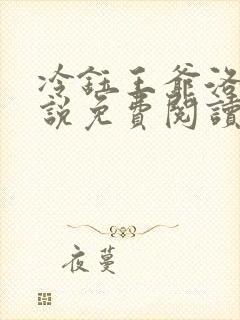 冷鈺王爺洛
說免費閱讀
夜蔓